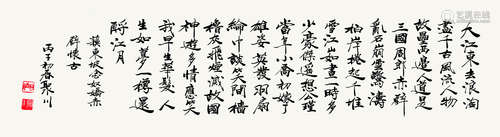 大江東去浪淘
盡千古風流人物
故壘西邊人道是
三國周郎赤壁
亂石崩雲驚濤
拍岸捲起千堆
雪江山如畫一時多
少豪傑遙想公瑾
當年小喬初嫁了
雄姿英發羽扇
綸巾談笑間檣
櫓灰飛煙滅故國
神遊多情應笑
我早生華髮人
生如夢一樽還
酹江月
蘇東坡念奴嬌赤
壁懷古
丙子初春聚川